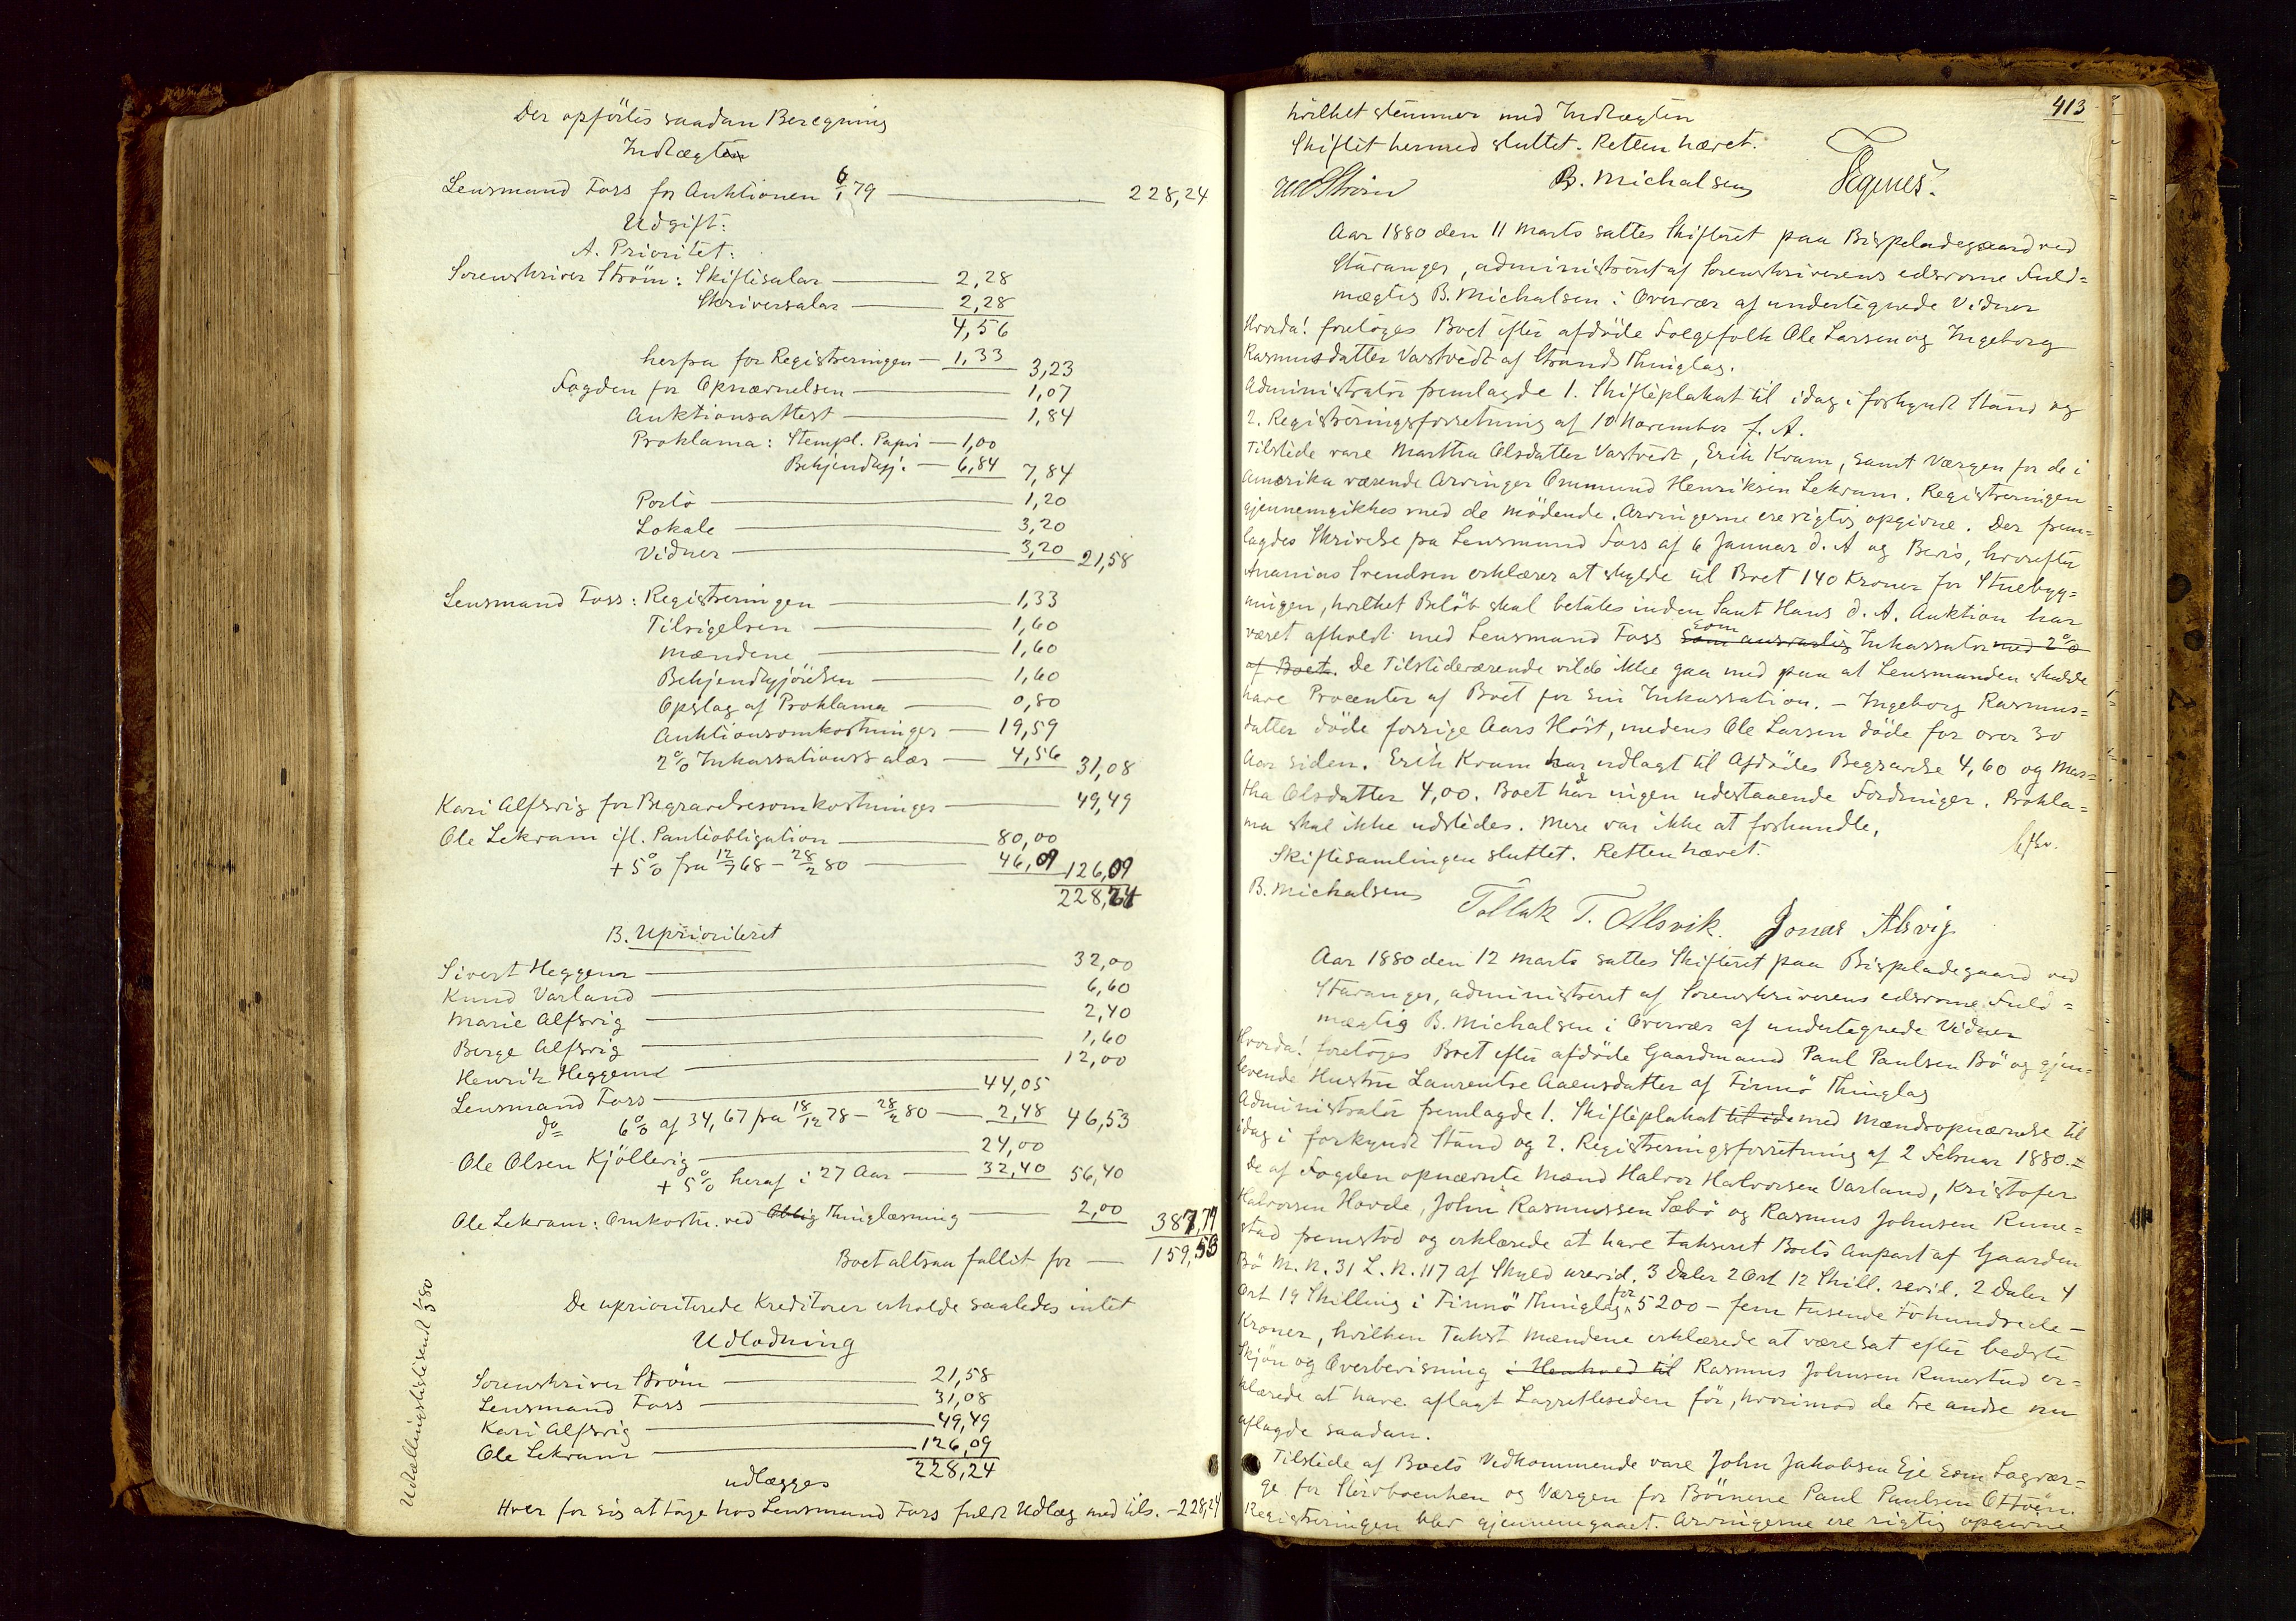 Der opførtes saadan Beregning
Indtægt
Lensmand Foss for Auktionen 6/1 79 228,24
Udgift:
A. Prioritet:
Sorenskriver Strøm: Skiftesalar 2,28
Skriversalar 2,28
4,56
herfra for Registreringen 1,33 3,23
Fogden for Opnævnelsen 1,07
Auktionsattest 1,84
Proklama: Stempl. Papir 1,00
Bekjendtgj. 6,84 7,84
Porto 1,20
Lokale 3,20
Vidner 3,20 21,58
Lensmand Foss: Registreringen 1,33
Tilsigelsen 1,60
Mændene 1,60
Bekjendtgjørelsen 1,60
Opslag af Proklama 0,80
Auktionsomkostninger 19,59
2% Inkassationssalær 4,56 31,08
Kari Alfsvig for Begravelsesomkostninger 49,49
Ole Lekvam ifl. Panteobligation 80,00
+ 5% fra 12/7 68 - 28/2 80 46,09 126,09
228,24
B. Uprioriteret
Sivert Heggem 32,00
Knud Varland 6,60
Marie Alfsvig 2,40
Berge Alfsvig 1,60
Henrik Heggem 12,00
Lensmand Foss 44,05
do 6% af 34,67 fra 18/12 78 - 28/2 80 2,48 46,53
Ole Olsen Kjøllevig 24,00
+ 5% heraf i 27 Aar 32,40 56,40
Ole Lekvam: Omkostn. ved Oblig Thinglæsning 2,00 387,77
Boet altsaa fallit for 159,53
De uprioriterede Kreditorer erholde saaledes intet
Udlodning
Sorenskriver Strøm 21,58
Lensmand Foss 31,08
Kari Alfsvig 49,49
Ole Lekvam 126,09
228,24
udlægges
Hver for sig at tage hos Lensmand Foss fuldt Udlæg med tils. - 228,24
Udtællingslisteudt 1/3 80
413
hvilket stemmer med Indtægten
Skiftet hermed sluttet. Retten hævet.
B. Michalsen
Aar 1880 den 11 Marts sattes Skifteret paa Bispeladegaard ved
Stavanger, administreret af Sorenskriverens edsvorne Fuld=
mægtig B. Michalsen i Overvær af undertegnede Vidner
Hvorda! foretoges Boet efter afdøde Folgefolk Ole Larsen og Ingeborg
Rasmusdatter Vastvedt af Strands Thinglag.
Administrator fremlagde 1. Skifteplakat til idag i forkyndt Stand og
2. Registreringsforretning af 10 November f. A.
Tilstede vare Martha Olsdatter Vastvedt, Erik Kvam, samt Værgen for de i
Amerika værende Arvinger Ommund Henriksen Lekvam. Registreringen
gjennemgikkes med de Mødende. Arvingerne ere rigtig opgivne. Der frem=
lagdes Skrivelse fra Lensmand Foss af 6 Januar d. A og Bevis, hvorefter
Ananias Svendsen erklærer at skylde til Boet 140 Kroner for Stuebyg=
ningen, hvilket Beløb skal betales inden Sant Hans d. A. Auktion har
været afholdt med Lensmand Foss som ansvarlig som Inkassator med 2%
af Boet. De Tilstedeværende vilde ikke gaa med paa at Lensmanden skulde
have Procenter af Boet for sin Inkassation. - Ingeborg Rasmus=
datter døde forrige Aars Høst, medens Ole Larsen døde for over 30
Aar siden. Erik Kvam har udlagt til Afdødes Begravelse 4,60 og Mar=
tha Olsdatter 4,00. Boet har ingen udestaaende Fordringer. Prokla=
ma skal ikke udstedes. Mere var ikke at forhandle,
Skiftesamlingen sluttet. Retten hævet.
B. Michalsen Tollak T. Alsvik. Jonas Alsvig
Aar 1880 den 12 Marts sattes Skifteret paa Bispeladegaard ved
Stavanger, administreret af Sorenskriverens edsvorne Fuld=
mægtig B. Michalsen i Overvær af undertegnede Vidner
Hvorda! foretoges Boet efter afdøde Gaardmand Paul Paulsen Bø og gjen=
levende Hustru Laurentse Aaensdatter af Finnø Thinglag
Administrator fremlagde 1. Skifteplakat til ide med Mændsopnævnelse til
idag i forkyndt Stand og 2. Registreringsforretning af 2 Februar 1880. =
De af Fogden opnævnte Mænd Halvor Halvorsen Varland, Kristofer
Halvorsen Hovde, John Rasmussen Sæbø og Rasmus Johnsen Rune=
stad fremstod og erklærede at have takseret Boets Anpart af Gaarden
Bø M. N. 31 L. N. 117 af Skyld urevid. 3 Daler 2 Ort 12 Skill. revid. 2 Daler 4
Ort 19 Skilling i Finnø Thinglag for 5200 - fem tusende tohundrede -
Kroner, hvilken Takst Mændene erklærede at være sat efter bedste
Skjøn og Overbevisning i Henhold til Rasmus Johnsen Runestad er=
klærede at have aflagt Lagretteseden før, hvorimod de tre andre nu
aflagde saadan.
Tilstede af Boets Vedkommende vare John Jakobsen Eje som Lagvær=
ge for Stervboenken og Værgen for Børnene Paul Paulsen Ottøen.
Registreringen blev gjennemgaaet. Arvingerne ere rigtig opgivne